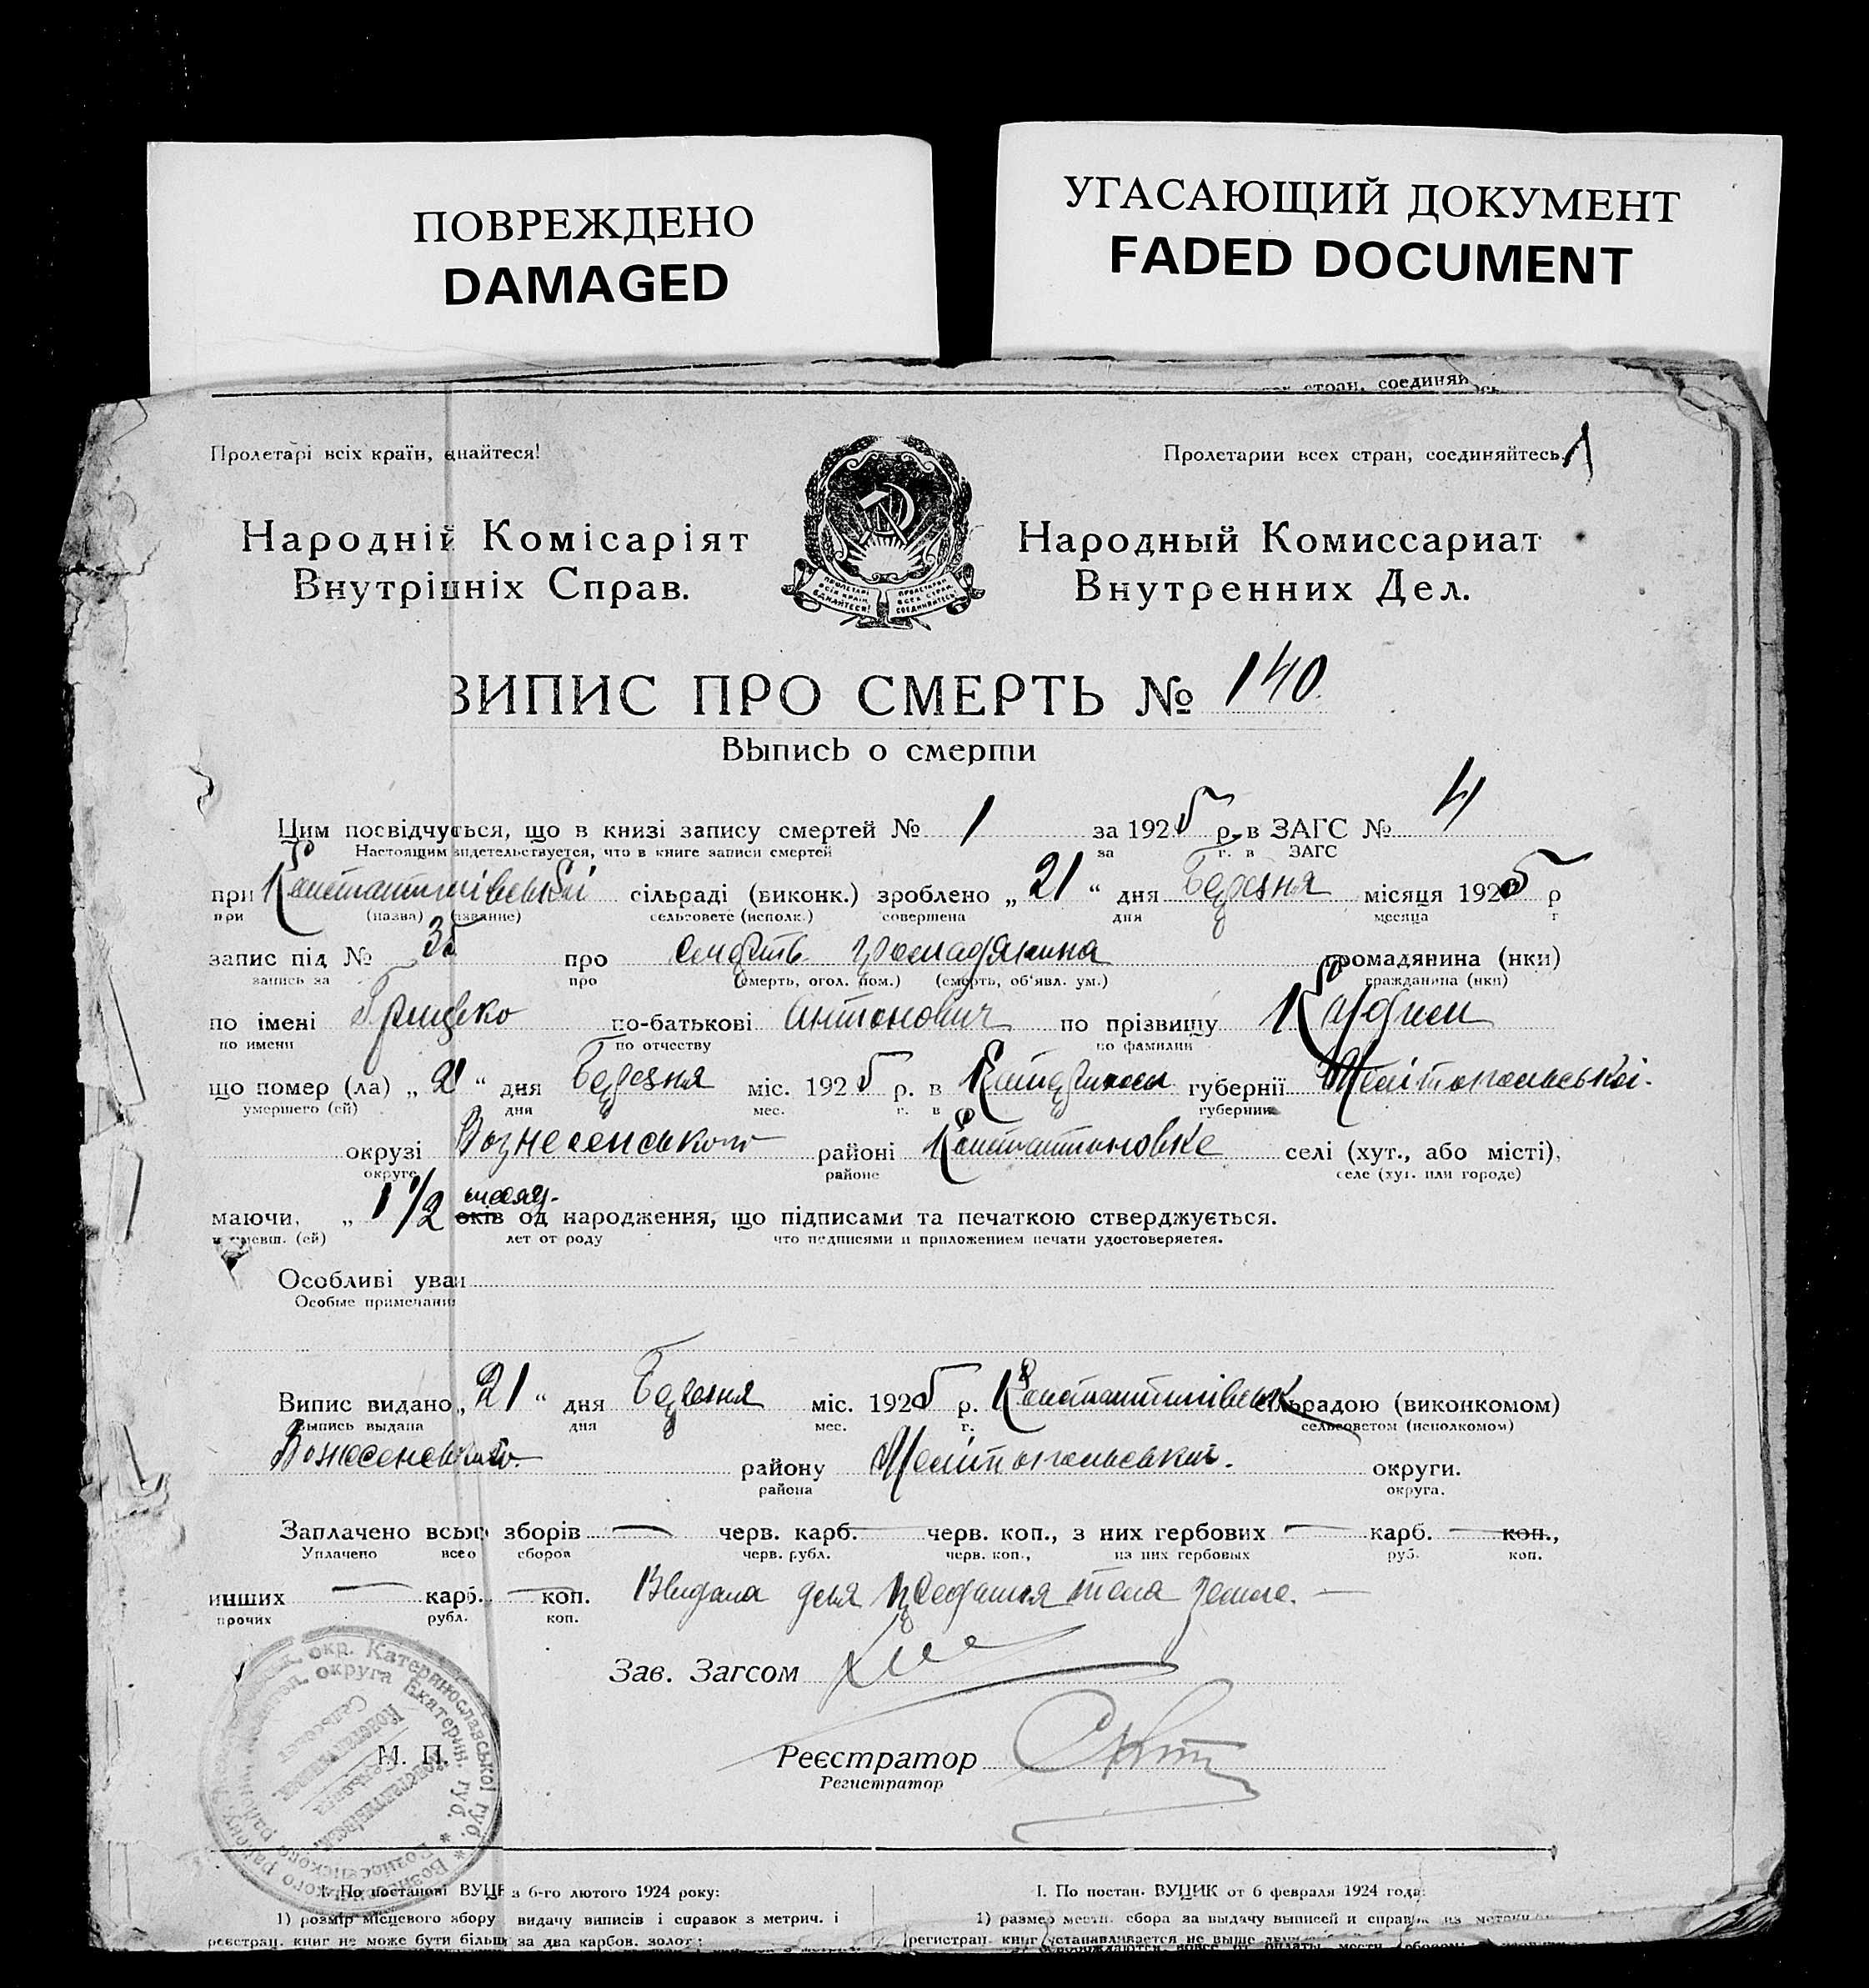 ПОВРЕЖДЕНО
DAMAGED
УГАСАЮЩИЙ ДОКУМЕНТ
FADED DOCUMENT
стран, соединяй
Пролетарі всіх країн, єднайтеся!
Пролетарии всех стран, соединяйтесь.
1
Народній Комісаріят
Внутрішніх Справ.
Народный Комиссариат
Внутренних Дел.
ПРОЛЕТАРІ ВСІХ КРАЇН ЄДНАЙТЕСЯ!
ПРОЛЕТАРИИ ВСЕХ СТРАН, СОЕДИНЯЙТЕСЬ!
ВИПИС ПРО СМЕРТЬ № 140
Выпись о смерти
Цим посвідчується, що в книзі запису смертей № 1 за 1925 р. в ЗАГС № 4
Настоящим видетельствуется, что в книге записи смертей за г. в ЗАГС
при Константинівській сільраді (виконк.) зроблено „ 21 “ дня Березня місяця 1925 р
при (назва) (название) сельсовете (исполк.) совершена дня месяца г
запис під № 35 про смерть громадянина громадянина (нки)
запись за про (смерть, огол. пом.) (смерть, об'явл. ум.) гражданина (нки)
по імені Грицько по-батькові Антонович по прізвищу
по имени по отчеству по фамилии
що помер (ла) „ 21 “ дня Березня міс. 1925 р. в губернії Мелітопольської
умершего (ей) дня мес. г. в губернии
округі Вознесенського районі Константиновке селі (хут., або місті),
округе районе селе (хут. или городе)
маючи, „ 1 1/2 місяц. оків од народження, що підписами та печаткою стверджується.
имевш. (ей) лет от роду что подписями и приложением печати удостоверяется.
Особливі уваг
Особые примечания
Випис видано „ 21 “ дня Березня міс. 1925 р. Константинівськ сільрадою (виконкомом)
Выпись выдана дня мес. г. сельсоветом (исполкомом)
Вознесенського району Мелітопольської округи.
района округа.
Заплачено всього зборів — черв. карб. — черв. коп., з них гербових — карб. — коп.,
Уплачено всего сборов черв. рубл. черв. коп., из них гербовых руб. коп.
инших — карб. — коп. Видана для предання тела земле. —
прочих рубл. коп.
Зав. Загсом
М. П.
Реєстратор
Регистратор
окр. Катеринославської губ. * Вознесенського району
округа Екатерин. губ. * Вознесенского района
I. По постанові ВУЦ з 6-го лютого 1924 року:
1) розмір місцевого збору видачу виписів і справок з метрич. і
реєстрац. книг не може бути більш за два карбов. золот;
I. По постан. ВУЦИК от 6 февраля 1924 года:
1) размер местн. сбора за выдачу выписей и справок из
регистрац. книг устанавливается не выше